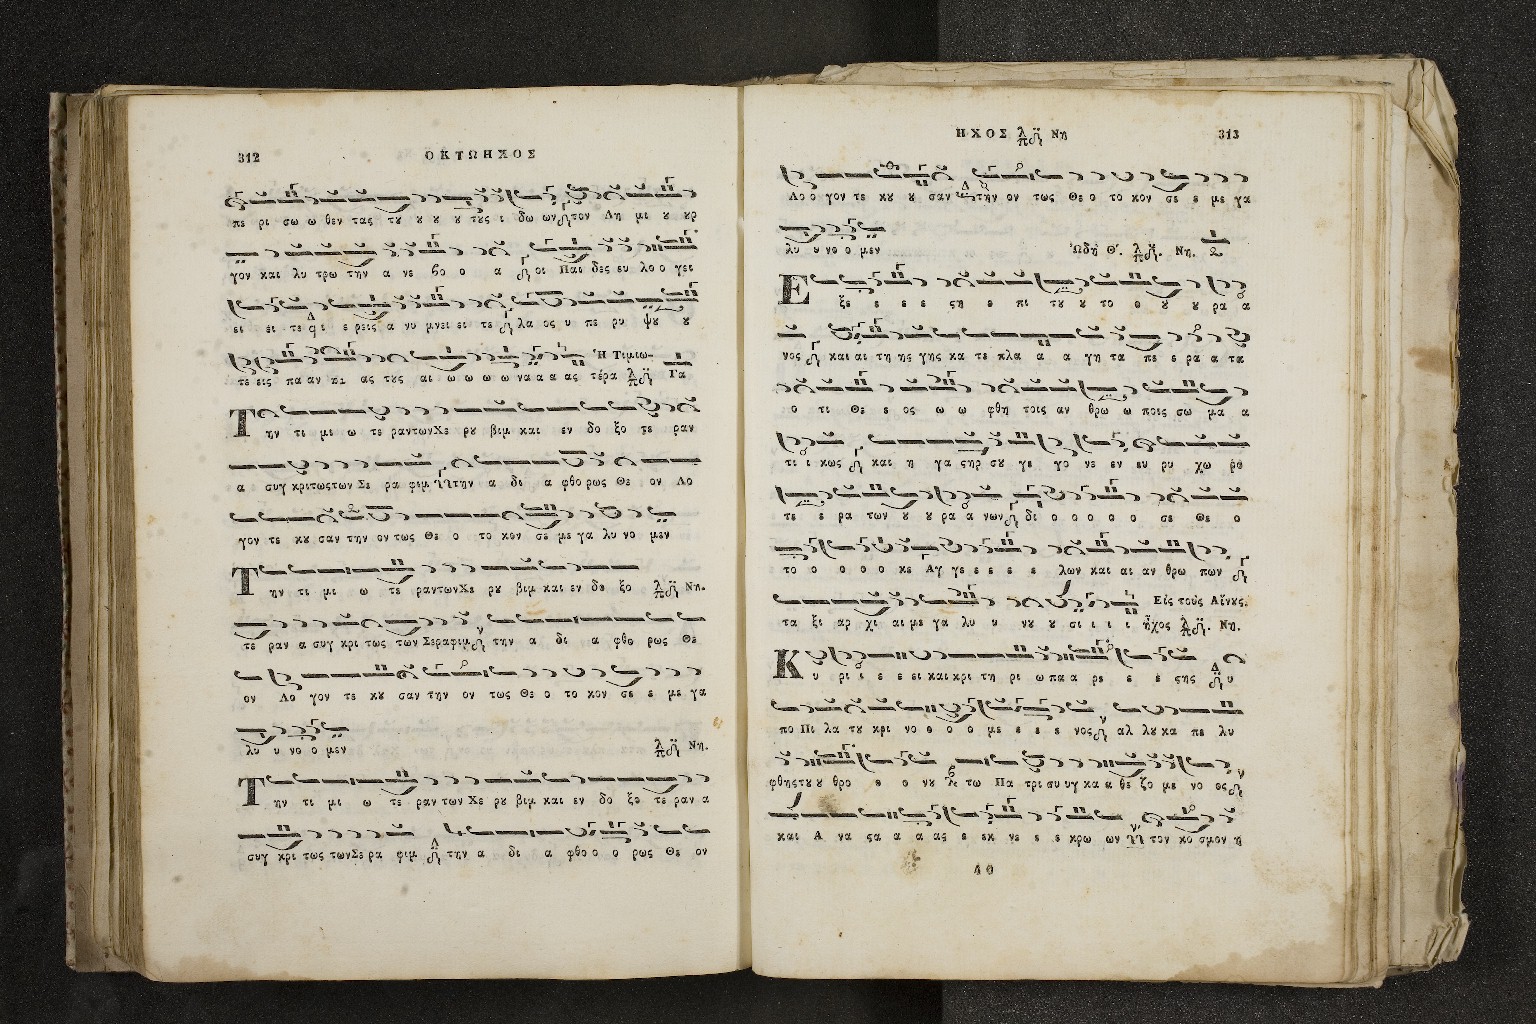 312
ΟΚΤΩΗΧΟΣ
πε ρι σω ω θεν τας τȣ ȣ ȣ ȣ τȣς ι δω ων τον Δη μι ȣ ȣρ
γον και λυ τρω την α νε βο ο α οι Παι δες ευ λο ο γει
ει ει τε ι ε ρεις α νυ μνει ει τε λα ος υ πε ρυ ψȣ ȣ
τε εις πα αν τας τȣς αι ω ω ω ω να α α ας Ἡ Τιμιω-
τέρα Γα
Την τι μι ω τε ραν των Χε ρȣ βιμ και εν δο ξο τε ραν
α συγ κριτως των Σε ρα φιμ την α δι α φθο ρως Θε ον Λο
γον τε κȣ σαν την ον τως Θε ο το κον σε με γα λυ νο μεν
Την τι μι ω τε ραν των Χε ρȣ βιμ και εν δο ξο Νη.
τε ραν α συγ κρι τως των Σεραφιμ την α δι α φθο ρως Θε
ον Λο γον τε κȣ σαν την ον τως Θε ο το κον σε ε με γα
λυ υ νο ο μεν Νη.
Την τι μι ω τε ραν των Χε ρȣ βιμ και εν δο ξο τε ραν α
συγ κρι τως των Σε ρα φιμ την α δι α φθο ο ο ρως Θε ον
ΗΧΟΣ Νη
313
Λο ο γον τε κȣ ȣ σαν την ον τως Θε ο το κον σε ε με γα
λυ υ νο ο μεν Ὠδὴ Θ΄. Νη.
Εξε ε ε ε ϛη ε πι τȣ ȣ το ο ȣ ȣ ρα α
νος και αι τη ης γης κα τε πλα α α γη τα πε ε ρα α τα
ο τι Θε ε ος ω ω φθη τοις αν θρω ω ποις σω μα α
τι ι κως και η γα ϛηρ σȣ γε γο νε εν ευ ρυ χω ρο
τε ε ρα των ȣ ȣ ρα α νων δι ο ο ο ο ο σε Θε ο
το ο ο ο ο κε Αγ γε ε ε ε ε λων και αι αν θρω πων
τα ξι αρ χι αι με γα λυ υ νȣ ȣ σι ι ι ι Εἰς τοὺς Αἴνȣς.
ἦχος Νη.
Κυ ρι ι ε ε ει και κρι τη ρι ω πα α ρε ε ε ϛης υ
πο Πι λα τȣ κρι νο ο ο ο με ε ε ε νος αλ λȣ κα πε λυ
φθης τȣ ȣ θρο ο ο νȣ τω Πα τρι συ υγ κα α θε ζο με νο ος
και Α να ϛα α α ας ε εκ νε ε ε κρω ων τον κο σμον η
40